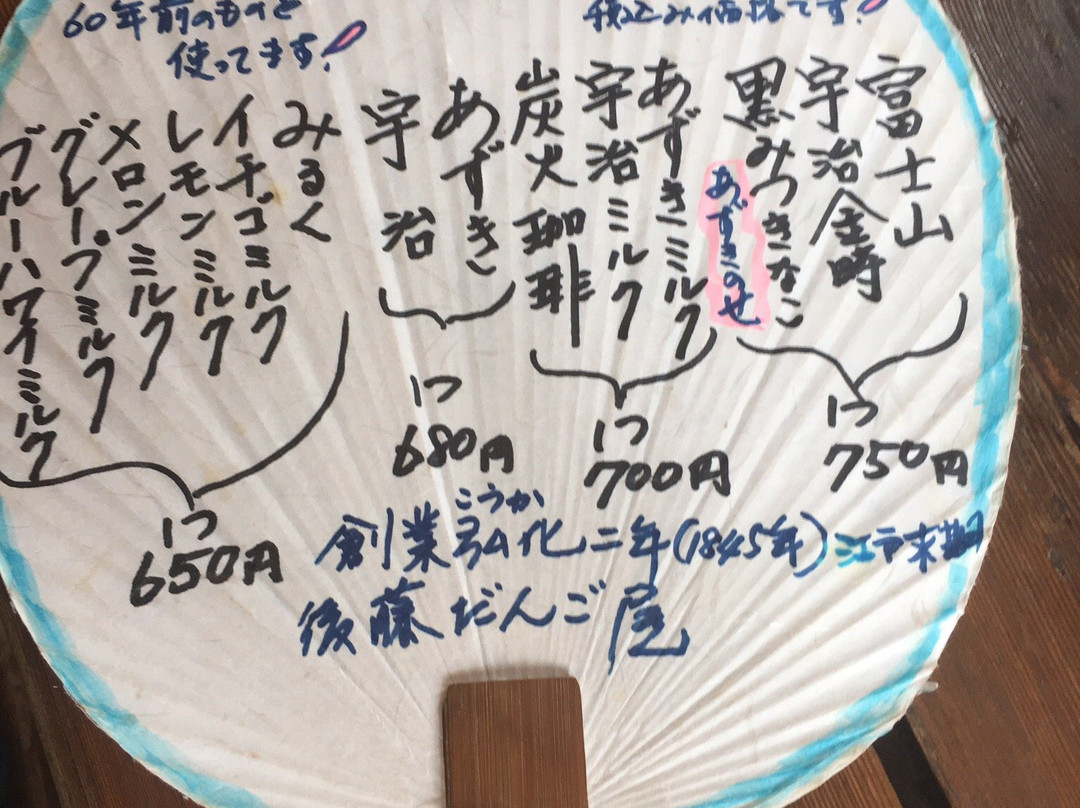 60年前のものを
使ってます!
税込み価格です!
富士山
宇治金時
黒みつきなこ
あずきのせ
1つ
750円
あずきミルク
宇治ミルク
炭火珈琲
1つ
700円
あずき
宇治
1つ
680円
みるく
イチゴミルク
レモンミルク
メロンミルク
グレープミルク
ブルーハワイミルク
1つ
650円
こうか
創業弘化二年(1845年)江戸末期
後藤だんご屋